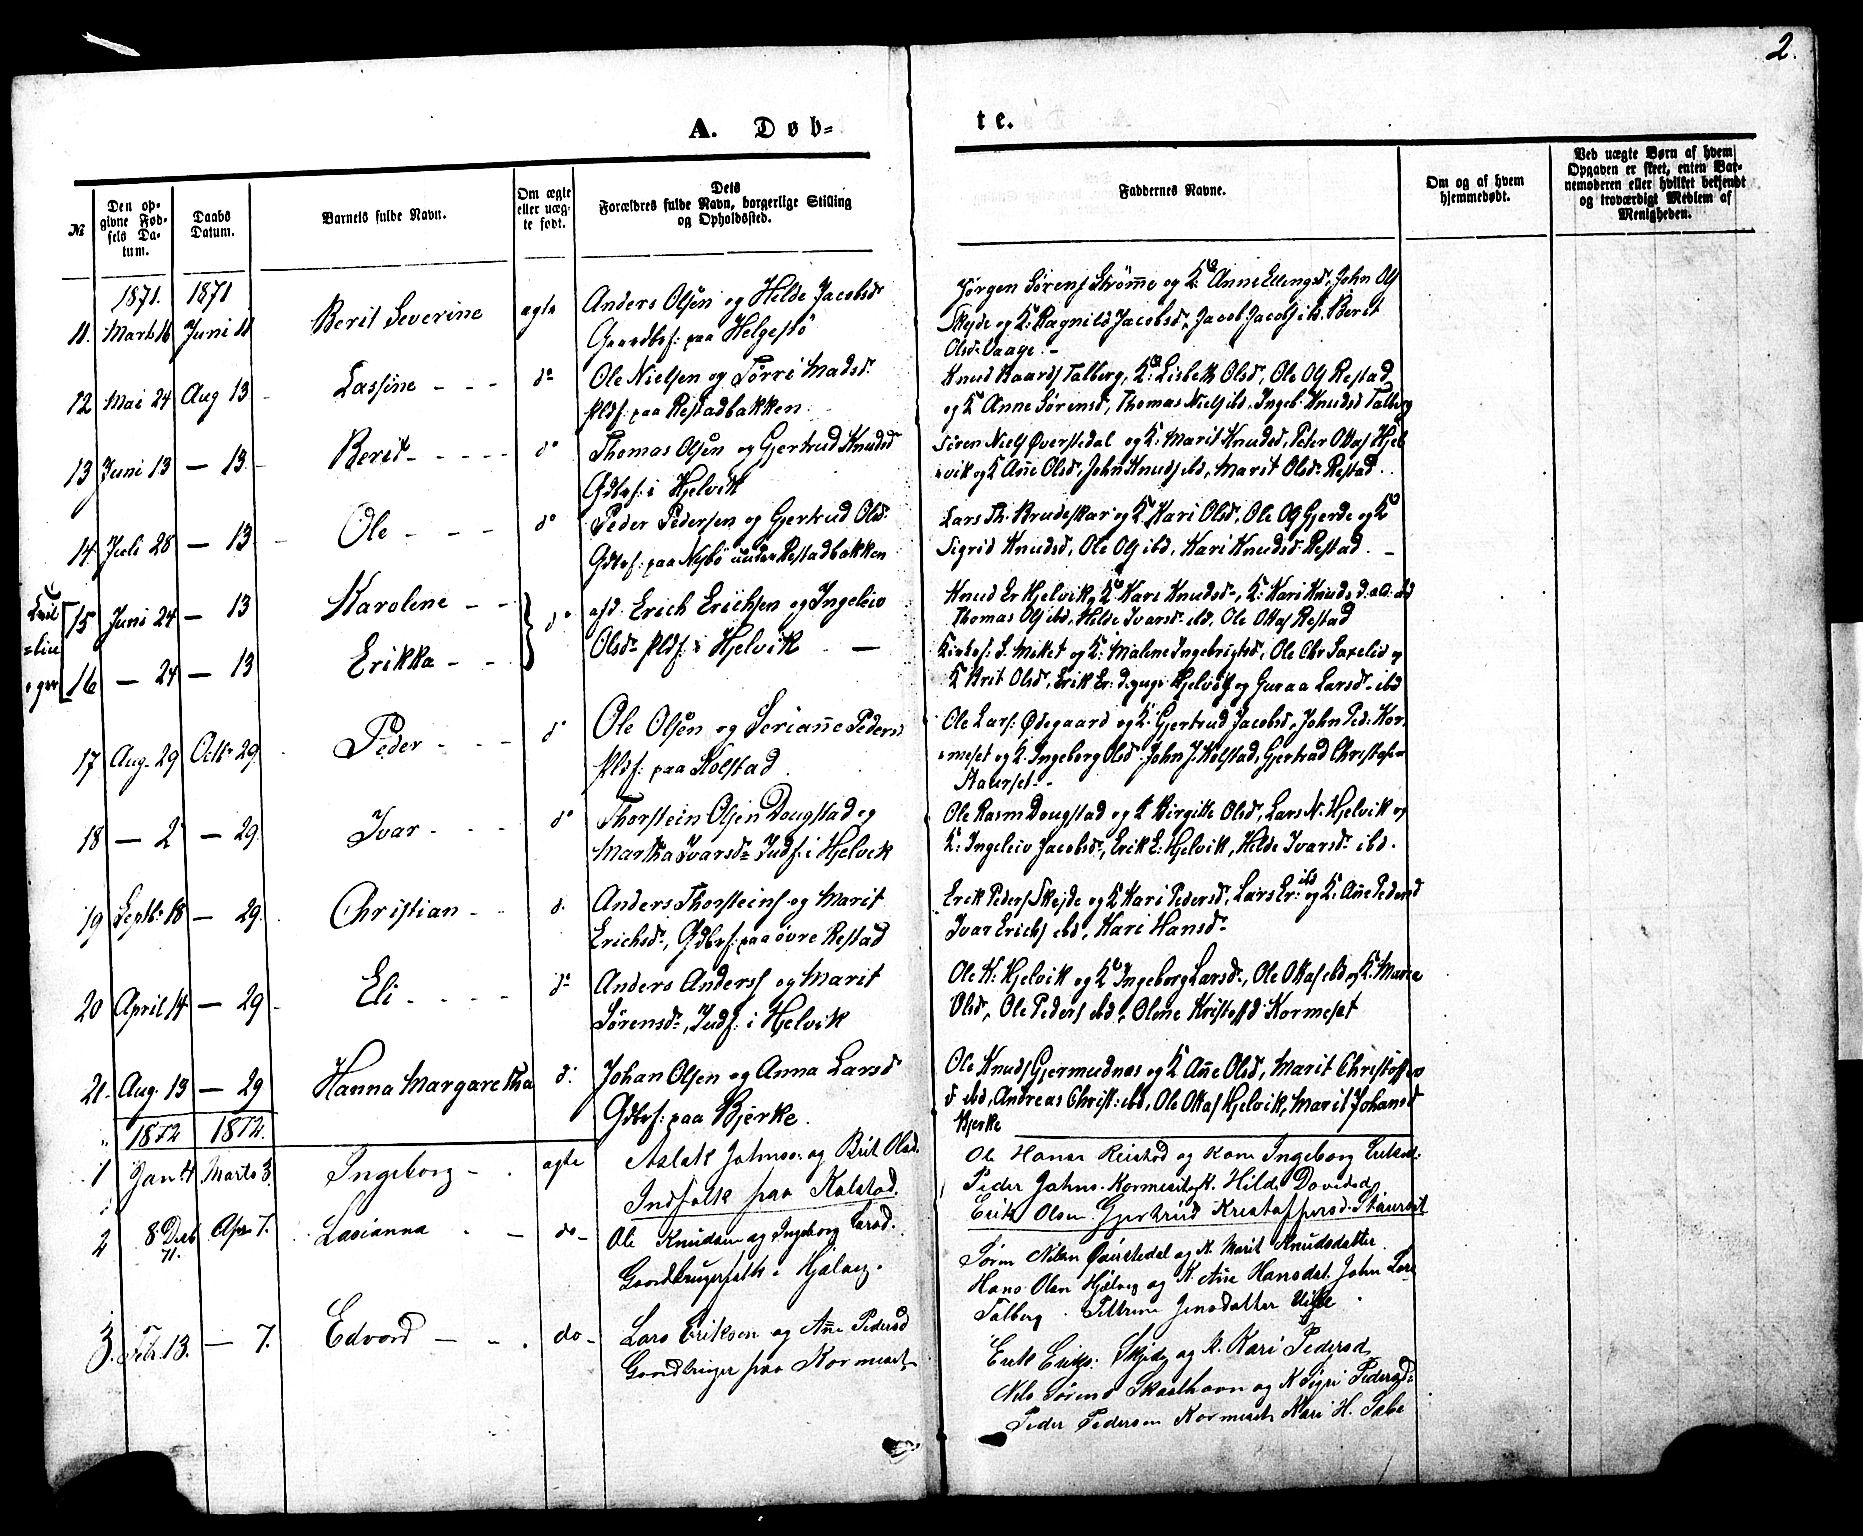 2.
A. Døb-
te.
№
Den op-
givne Fød-
sels Da-
tum.
Daabs
Datum.
Barnets fulde Navn.
Om ægte
eller uæg-
te født.
Dets
Forældres fulde Navn, borgerlige Stilling
og Opholdssted.
Faddernes Navne.
Om og af hvem
hjemmedøbt.
Ved uægte Børn af hvem
Opgaven er skeet, enten Bar-
nemoderen eller hvilket bekjendt
og troværdigt Medlem af
Menigheden.
1871. 1871
11. Marts 16 Juni 11 Berit Severine ægte Anders Olsen og Helde Jacobsd
Gaardbrf: paa Helgestø
Jørgen Sørens Strømme og K: Anne Ellingsd, John Ols
Skejde og K: Ragnild Jacobsd, Jacob Jacobs ibd. Berit
Olsd Vaage. –
12 Mai 24 Aug 13 Lassine - - - do Ole Nielsen og Sørri Madsd
Pldf: paa Restadbakken
Knud Baards Talberg, K: Lisbeth Olsd, Ole Ols Restad
og K Anne Sørensd, Thomas Niels ibd, Ingeb: Knudsd Talberg
13 Juni 13 – 13. Berit - - - - do Thomas Olsen og Gjertrud Knudsd
Gdbrf: i Hjelvik
Sören Niels Øverstedal og K: Marit Knudsd, Peter Ottas Hjel
vik og K Añe Olsd, John Knuds ibd, Marit Olsd Restad.
14. Juli 28 – 13 Ole - - - do Peder Pedersen og Gjertrud Olsd:
Gdbrf: paa Nybø under Restadbakken
Lars Th: Brudeskar og K: Kari Olsd, Ole Ols Gjerde og K
Sigrid Knudsd, Ole Ols ibd, Kari Knudsd Restad. –
Tvil
=lin
=ger
15 Juni 24 – 13 Karolene - - do afd. Erich Erichsen og Ingeleiv
Olsd Pldf: i Hjelvik –
Knud Er Hjelvik, K: Kari Knudsd, K: Kari Knudsd ibd
Thomas Ols ibd, Helde Ivarsd ibd, Ole Ottas Restad
16 – 24 – 13 Erikka - -
S. Meket og K: Malene Ingebrigtsd, Ole Chr og
K Brit Olsd, Erik Er: Hjelvik og Guraa Larsd ibd
17 Aug. 29 Octb 29 Peder - - - do Ole Olsen og Serianne Pedersd
Pldf: paa Kolstad
Ole Lars: Ødegaard og K: Gjertrud Jacobsd, John Ped: Kor-
meset og K: Ingeborg Olsd John J. Kolstad, Gjertrud Christofsd
Staurset –
18 – 2 – 29. Ivar - - - do Thorstein Olsen Dougstad og
Martha Ivarsd Indf: i Hjelvik
Ole Rasm Dougstad og K Birgitte Olsd, Lars N: Hjelvik og
K: Ingeleiv Jacobsd, Erik E: Hjelvik, Helde Ivarsd ibd.
19 Septbr 18 – 29. Christian - - d. Anders Thorsteins og Marit
Erichsd, Gdbrf: paa øvre Restad
Erik Peders Skejde og K Kari Pedersd, Lars Er: ibd og K: Añe Pedersd
Ivar Erichs ibd, Kari Hansd
20 April 14 – 29 Eli - - - - do Anders Anderss og Marit
Sørensd, Indf: i Hjelvik
Ole K: Hjelvik og K Ingeborg Larsd, Ole Ottas ibd og K: Marie
Olsd, Ole Peders ibd, Olene Kristoffd Kormeset
21. Aug. 13 – 29 Hanna Margaretha d. Johan Olsen og Anna Larsd
Gdbrf: paa Bjerke.
Ole Knuds Gjermundnes og K Añe Olsd, Marit Christoffer
d ibd, Andreas Christ: ibd, Ole Ottas Hjelvik, Marit Johansd
Bjerke
1872 1872.
1 Jan. 4 Marts 3. Ingeborg - . ægte Aslak Johnsen og Brit Olsd.
Indfolk paa Kolstad.
Ole Hansen og Kone Ingeborg Eriksd:
Peder Johns. Kormeset og K. Hilde Davidsd
Erik Olsen Gjertrud Kristoffersd. Staurset
2 8 Decb 71. Apr. 7. Lasianna - – do - Ole Knudsen og Ingeborg Larsd.
Gaardbrugerfolk i Hjelvig.
Søren Nilsen Øverstedal og K. Marit Knudsdatter
Hans Olsen Hjelvig og K. Añe Hansdat. John Lars
Talberg. Petrine Jensdatter
3. Febr. 13. – 7. Edvard – - . do - Lars Eriksen og Añe Pedersd
Gaardbruger paa Kormeset
Erik Eriks: Skjede og K. Kari Pedersd,
Nils Sørens og K Sigri Pedersd:
Peder Pedersen Kormeset, Kari H.